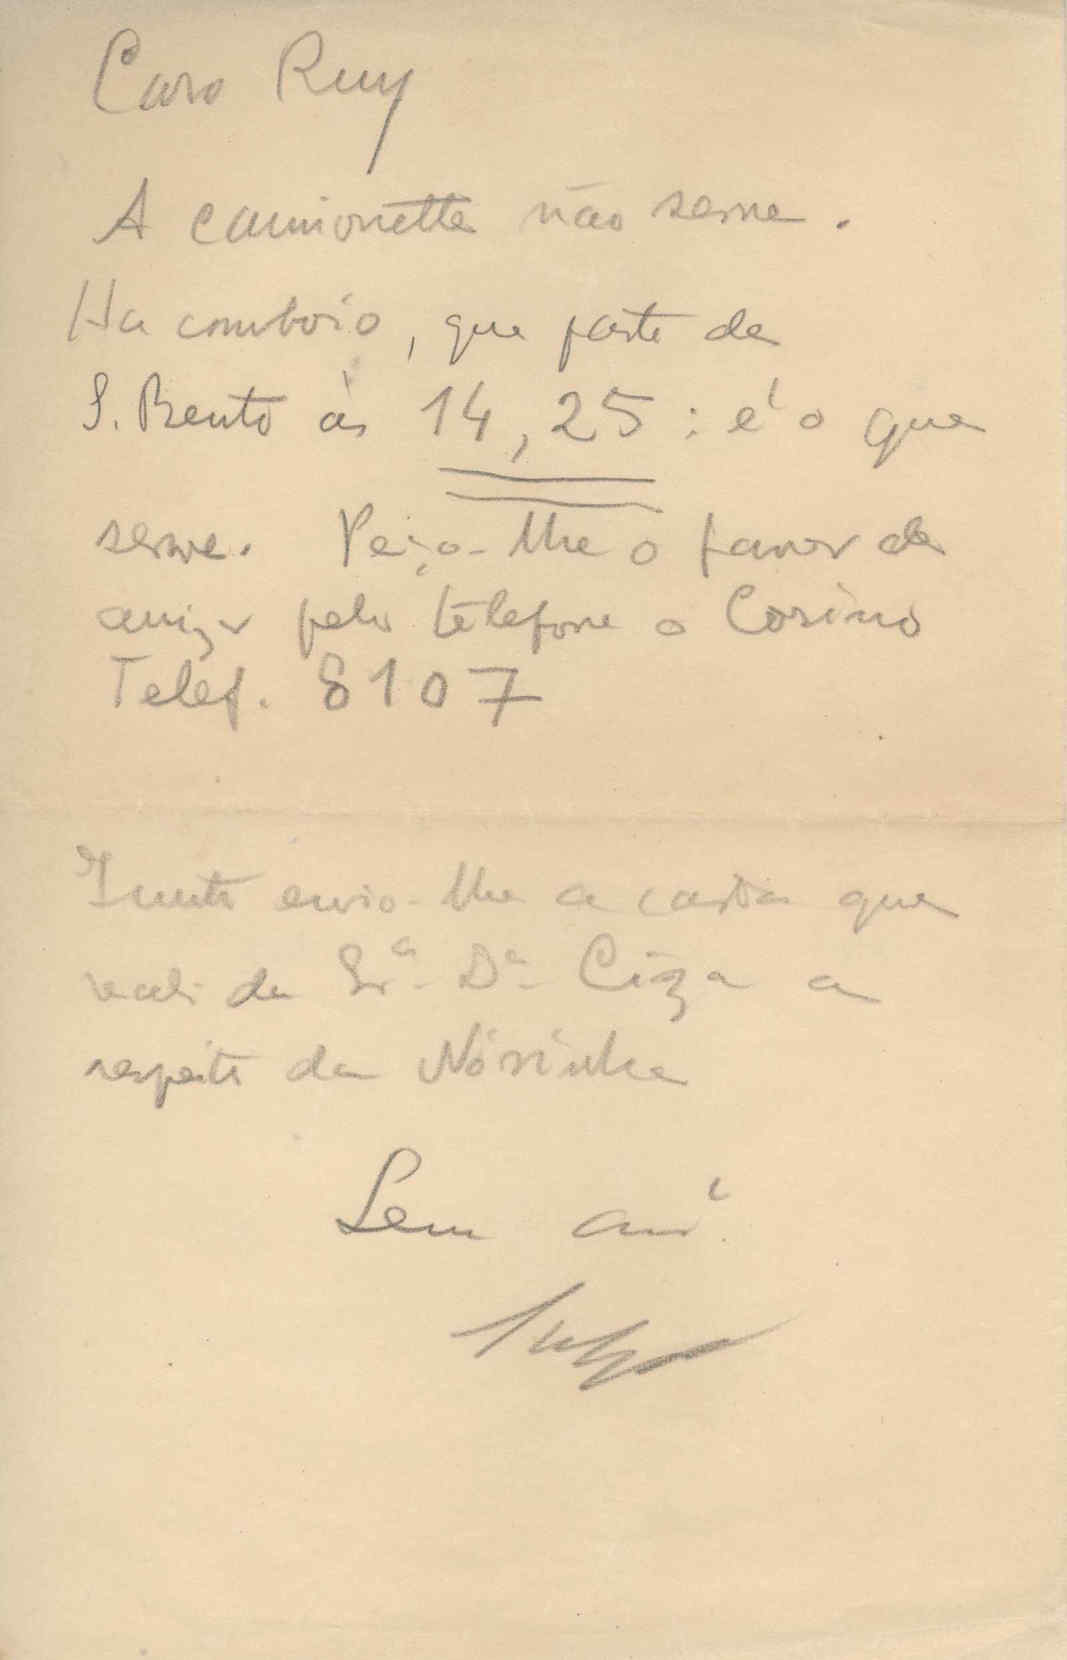 Caro Ruy
A camionette não serve.
Ha comboio, que parte de
S. Bento às 14,25: é o que
serve. Peço-lhe o favor de
avizar pelo telefone o Corino
Telef. 8107
Junto envio-lhe a carta que
recebi da Srª. Dª. Ciza a
respeito da Nórinha
Sem